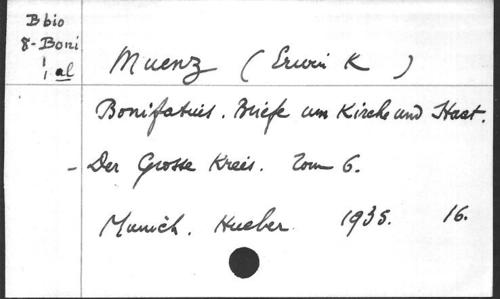 B bio
8-Boni
1 al
Muenz (Erwin K )
Bonifatius. Briefe um Kirche und Staat.
- Der Grosse Kreis. Tom 6.
Munich. Hueber. 1935. 16.